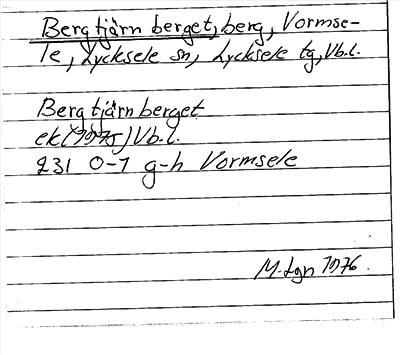 Bergtjärnberget, berg, Vormse-
le, Lycksele sn, Lycksele tg, Vb.l.
Bergtjärnberget
ek (1975) Vb.l.
231 0-1 g-h Vormsele
M. Lgn 1976.